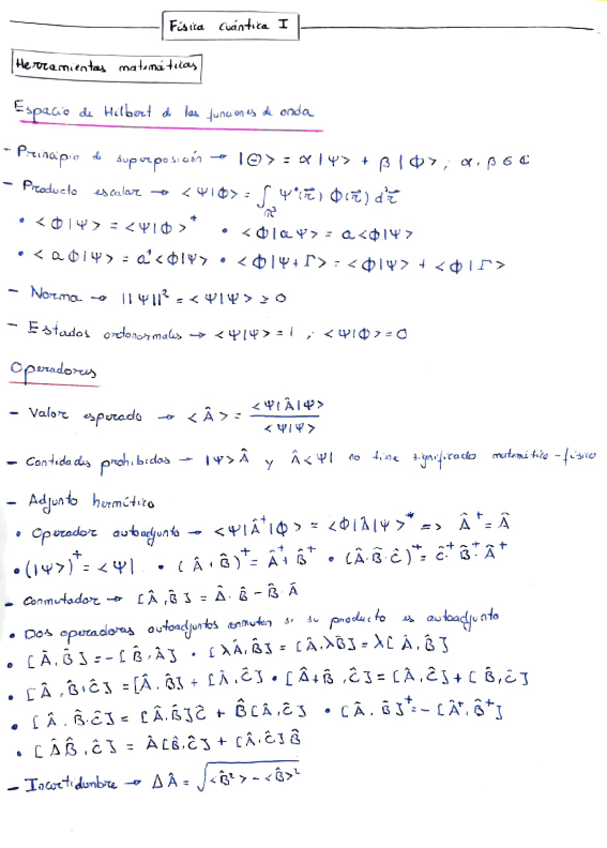 Física Cuántica I
Herramientas matemáticas
Espacio de Hilbert de las funciones de onda
- Principio de superposición → |Θ> = α|Ψ> + β|Φ>, α, β ∈ ℂ
- Producto escalar → <Ψ|Φ> = ∫_ℝ³ Ψ*(r⃗) Φ(r⃗) d³r⃗
• <Φ|Ψ> = <Ψ|Φ>* • <Φ|aΨ> = a<Φ|Ψ>
• <aΦ|Ψ> = a*<Φ|Ψ> • <Φ|Ψ+Γ> = <Φ|Ψ> + <Φ|Γ>
- Norma → ||Ψ||² = <Ψ|Ψ> ≥ 0
- Estados ortonormales → <Ψ|Ψ> = 1 ; <Ψ|Φ> = 0
Operadores
- Valor esperado → <Â> = <Ψ|Â|Ψ> / <Ψ|Ψ>
- Cantidades prohibidas → |Ψ>Â y Â<Ψ| no tiene significado matemático-físico
- Adjunto hermítico
• Operador autoadjunto → <Ψ|Â⁺|Φ> = <Φ|Â|Ψ>* => Â⁺ = Â
• (|Ψ>)⁺ = <Ψ| • (Â+B̂)⁺ = Â⁺+B̂⁺ • (Â·B̂·Ĉ)⁺ = Ĉ⁺·B̂⁺·Â⁺
- Conmutador → [Â,B̂] = Â·B̂ - B̂·Â
• Dos operadores autoadjuntos conmutan si su producto es autoadjunto
• [Â,B̂] = -[B̂,Â] • [λÂ,B̂] = [Â,λB̂] = λ[Â,B̂]
• [Â,B̂+Ĉ] = [Â,B̂] + [Â,Ĉ] • [Â+B̂,Ĉ] = [Â,Ĉ] + [B̂,Ĉ]
• [Â,B̂·Ĉ] = [Â,B̂]Ĉ + B̂[Â,Ĉ] • [Â,B̂]⁺ = -[Â⁺,B̂⁺]
• [ÂB̂,Ĉ] = Â[B̂,Ĉ] + [Â,Ĉ]B̂
- Incertidumbre → ΔÂ = √(<B̂²> - <B̂>²)